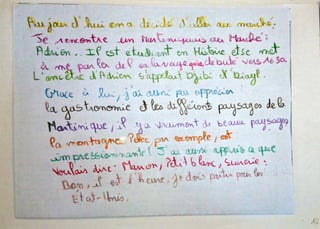 Aujourd'hui on a décidé d'aller au marché.
Je rencontre un Martiniquais au Marché :
Adrien... Il est étudiant en Histoire et se met
à me parler de l'esclavage qui débute vers 1635a
L'ancêtre d'Adrien s'appelait Djibi d'
Grâce à lui, j'ai aussi pu apprécier
la gastronomie d les différents paysages de la
Martinique, il y a vraiment de beaux paysages
la montagne Pelée, par exemple, est
impressionnante ! J'ai aussi appris ce que
voulais dire : Marron, Petit blanc, Sucrerie.
Bon, il est l'heure, je dois partir pour les
Etat-Unis.